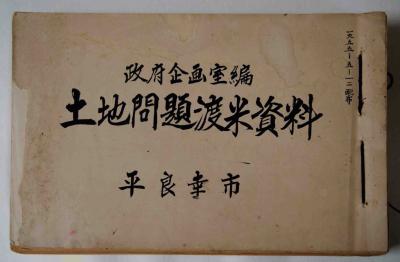 政府企画室編
土地問題渡米資料
平良幸市
一九五五-五-一二配布